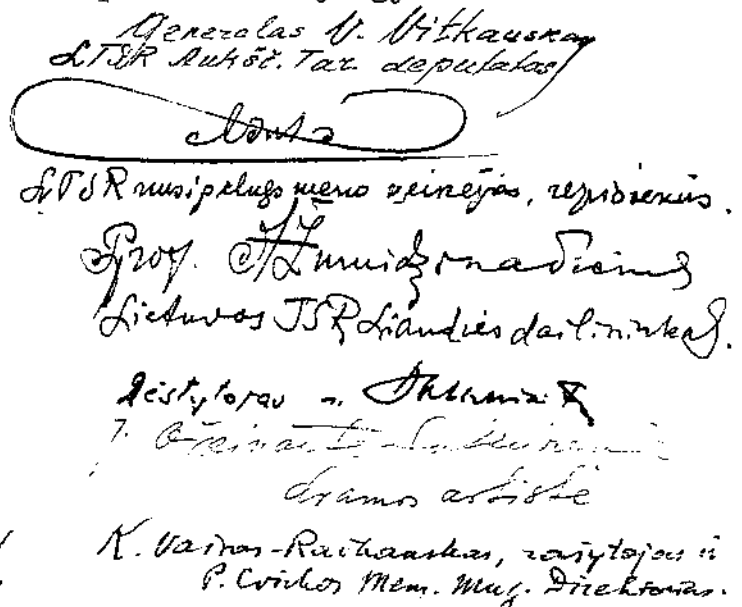 Generolas V. Vitkauskas
LTSR Aukšč. Tar. deputatas
LTSR nusipelnęs meno veikėjas, režisierius.
Prof. A Žmuidzinavičius
Lietuvos TSR Liaudies dailininkas.
Dėstytojas
dramos artistė
K. Vairas-Račkauskas, rašytojas ir
P. Cvirkos Mem. Muz. Direktorius.